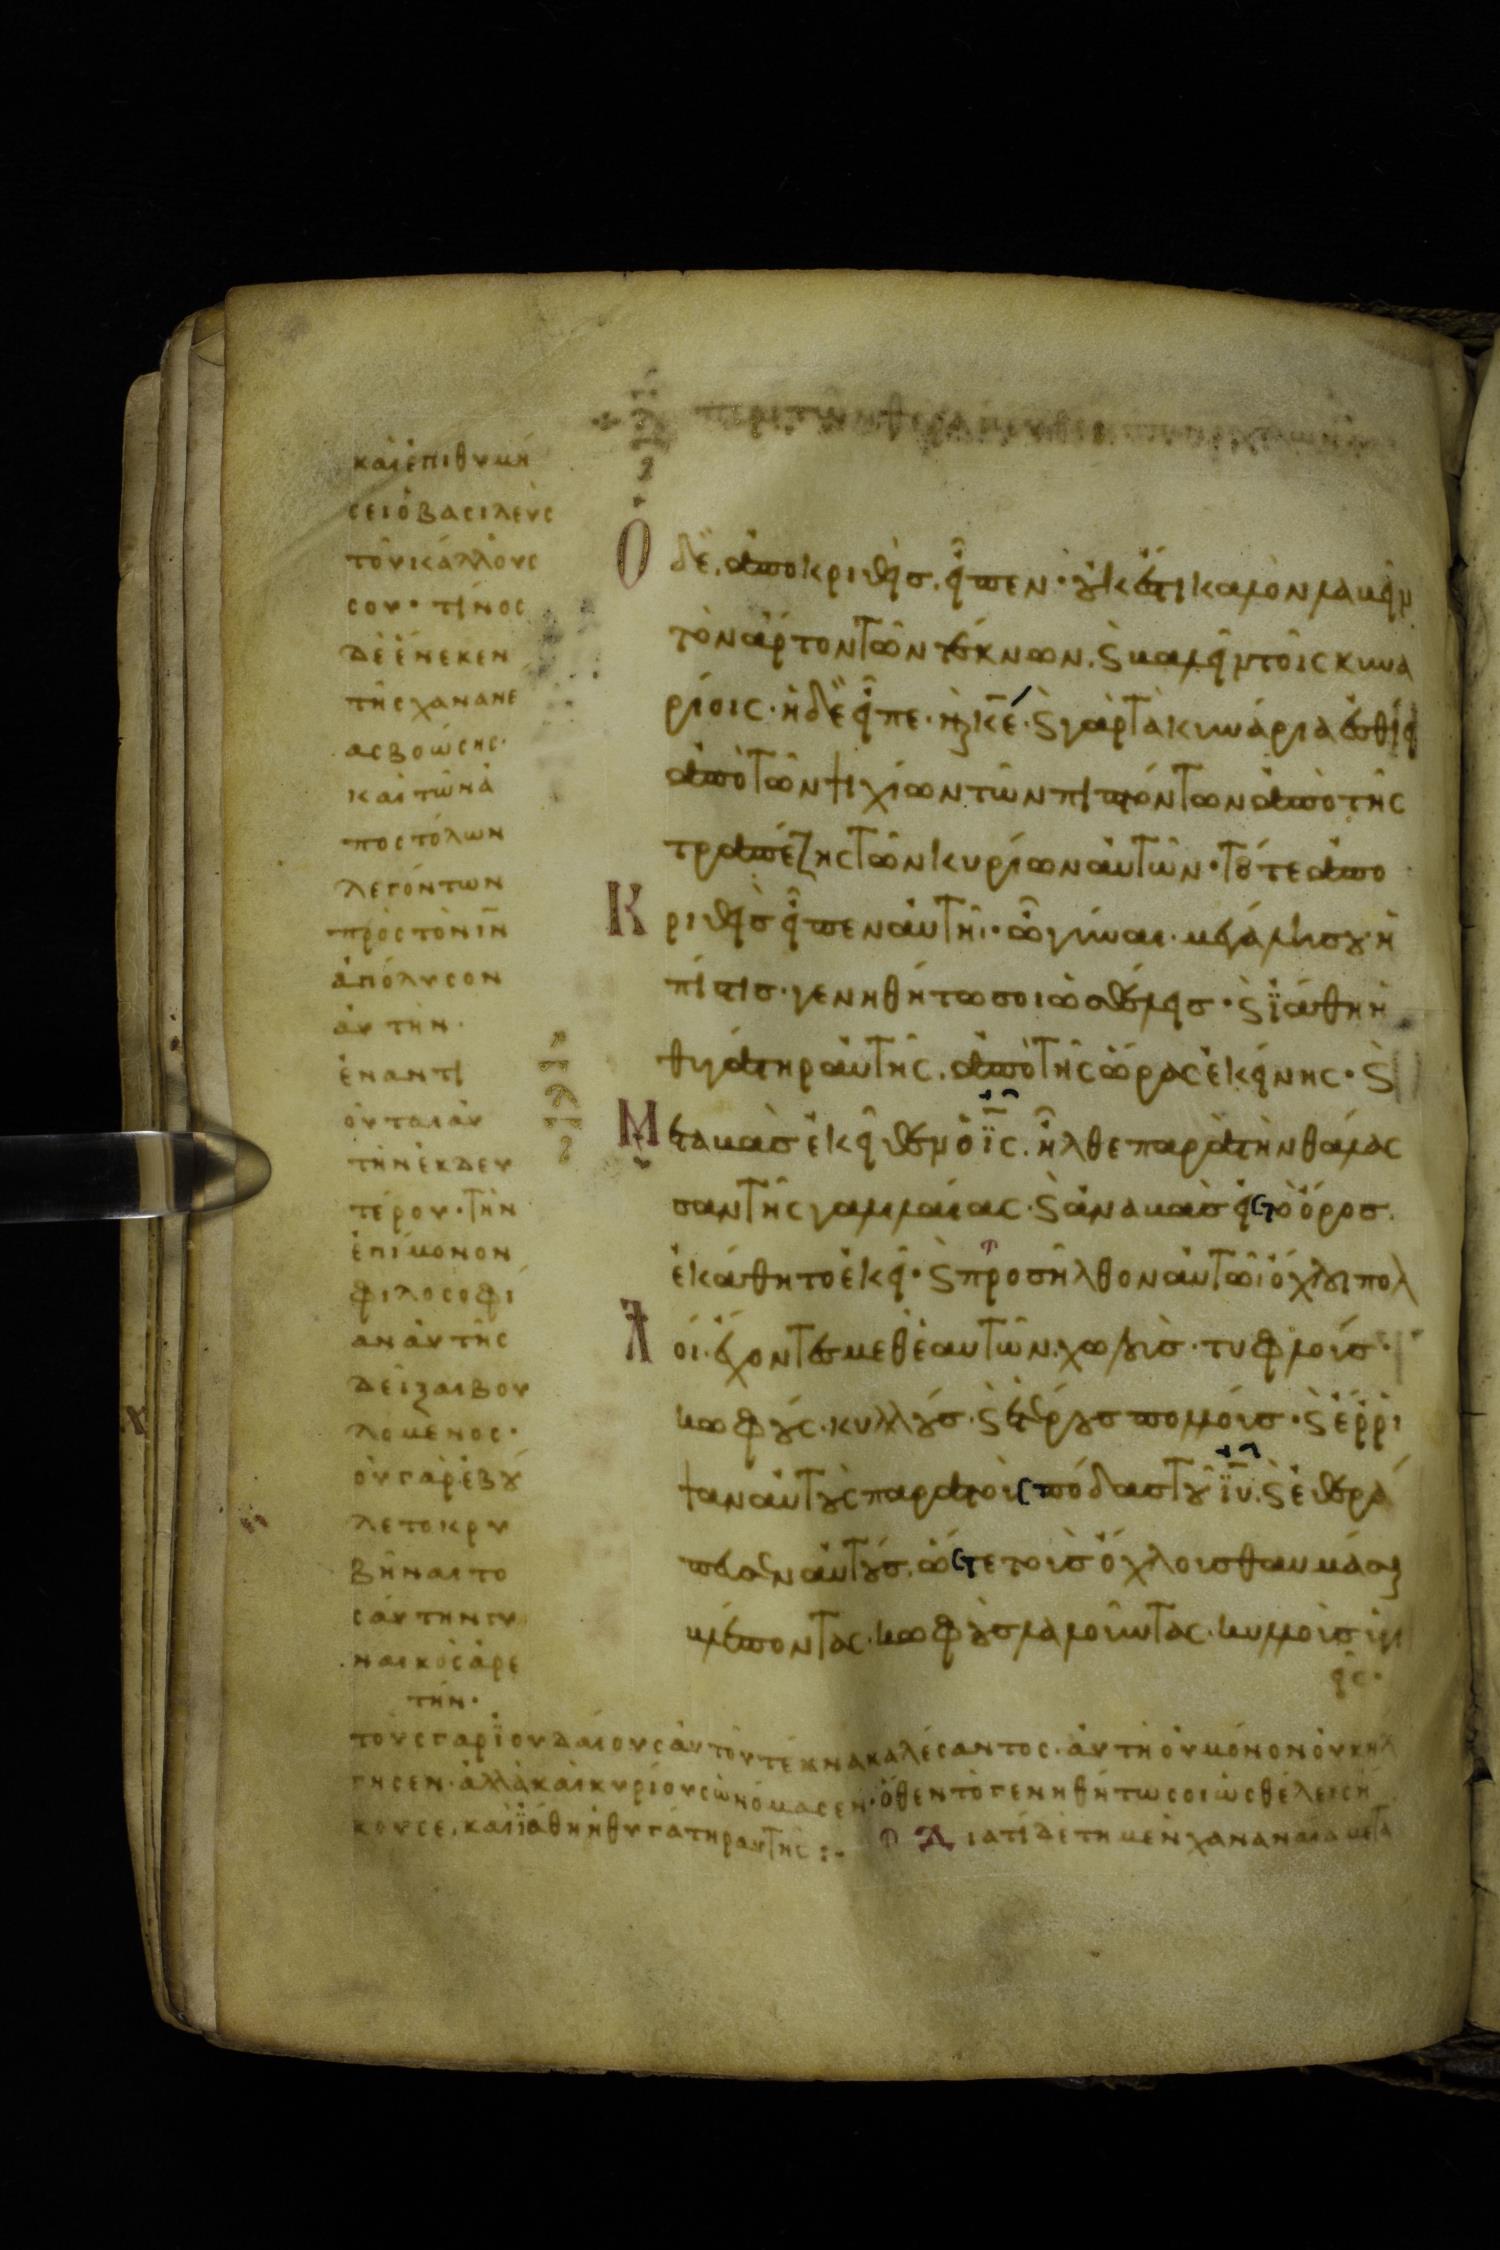 καὶ ἐπιθυμή
σει ὁ βασιλεὺς
τοῦ κάλλους
σου· τίνος
δὲ ἕνεκεν
τῆς χανανέ
ας βοώσης·
καὶ τῶν ἀ
ποστόλων
λεγόντων
πρὸς τὸν ιν̄
ἀπόλυσον
αὐτὴν·
ἐναντι
οῦται αὐ
τὴν ἐκ δευ
τέρου· τὴν
ἐπίμονον
φιλοσοφί
αν αὐτῆς
δεῖξαι βου
λόμενος·
οὐ γὰρ ἐβού
λετο κρυ
βῆναι το
σαύτην γυ
ναικὸς ἀρε
τήν·
Ο δὲ ἀποκριθεὶς εἶπεν· οὐκ ἔστι καλὸν λαβεῖν
τὸν ἄρτον τῶν τέκνων, ϗ βαλεῖν τοῖς κυνα
ρίοις· ἡ δὲ εἶπε· ναὶ κ̄ε· ϗ γὰρ τὰ κυνάρια ἐσθίει
ἀπὸ τῶν ψιχίων τῶν πιπτόντων ἀπὸ τῆς
τραπέζης τῶν κυρίων αὐτῶν· τότε ἀπο
Κριθεὶς εἶπεν αὐτῆι· ὦ γύναι· μεγάλη σου ἡ
πίστις· γενηθήτω σοι ὡς θέλεις· ϗ ἰάθη ἡ
θυγάτηρ αὐτῆς, ἀπὸ τῆς ὥρας ἐκείνης· ϗ
Μεταβὰς ἐκεῖθεν ὁ ῑς, ἦλθε παρὰ τὴν θάλασ
σαν τῆς γαλιλαίας· ϗ ἀναβὰς εἰς τὸ ὄρος
ἐκάθητο ἐκεῖ· ϗ προσῆλθον αὐτῶι ὄχλοι πολ
Λοί· ἔχοντες μεθ ἑαυτῶν, χωλοὺς· τυφλούς·
κωφούς· κυλλούς· ϗ ἑτέρους πολλούς· ϗ ἔρρι
ψαν αὐτοὺς παρὰ τοὺς πόδας τοῦ ῑυ, ϗ ἐθερά
πευσεν αὐτούς, ὥστε τοὺς ὄχλους θαυμάσαι
βλέποντας· κωφοὺς λαλοῦντας· κυλλοὺς ὑγι
εῖς·
τοὺς γὰρ ἰουδαίους αὐτοῦ τέκνα καλέσαντος· αὐτὴ οὐ μόνον οὐκ ἤλ
γησεν· ἀλλὰ καὶ κυρίους ὠνόμασεν· ὅθεν τὸ γενηθήτω σοι ὡς θέλεις ἤ
κουσε, καὶ ἰάθη ἡ θυγάτηρ αὐτῆς :- Διατί δὲ τῆ μὲν χαναναία μετὰ